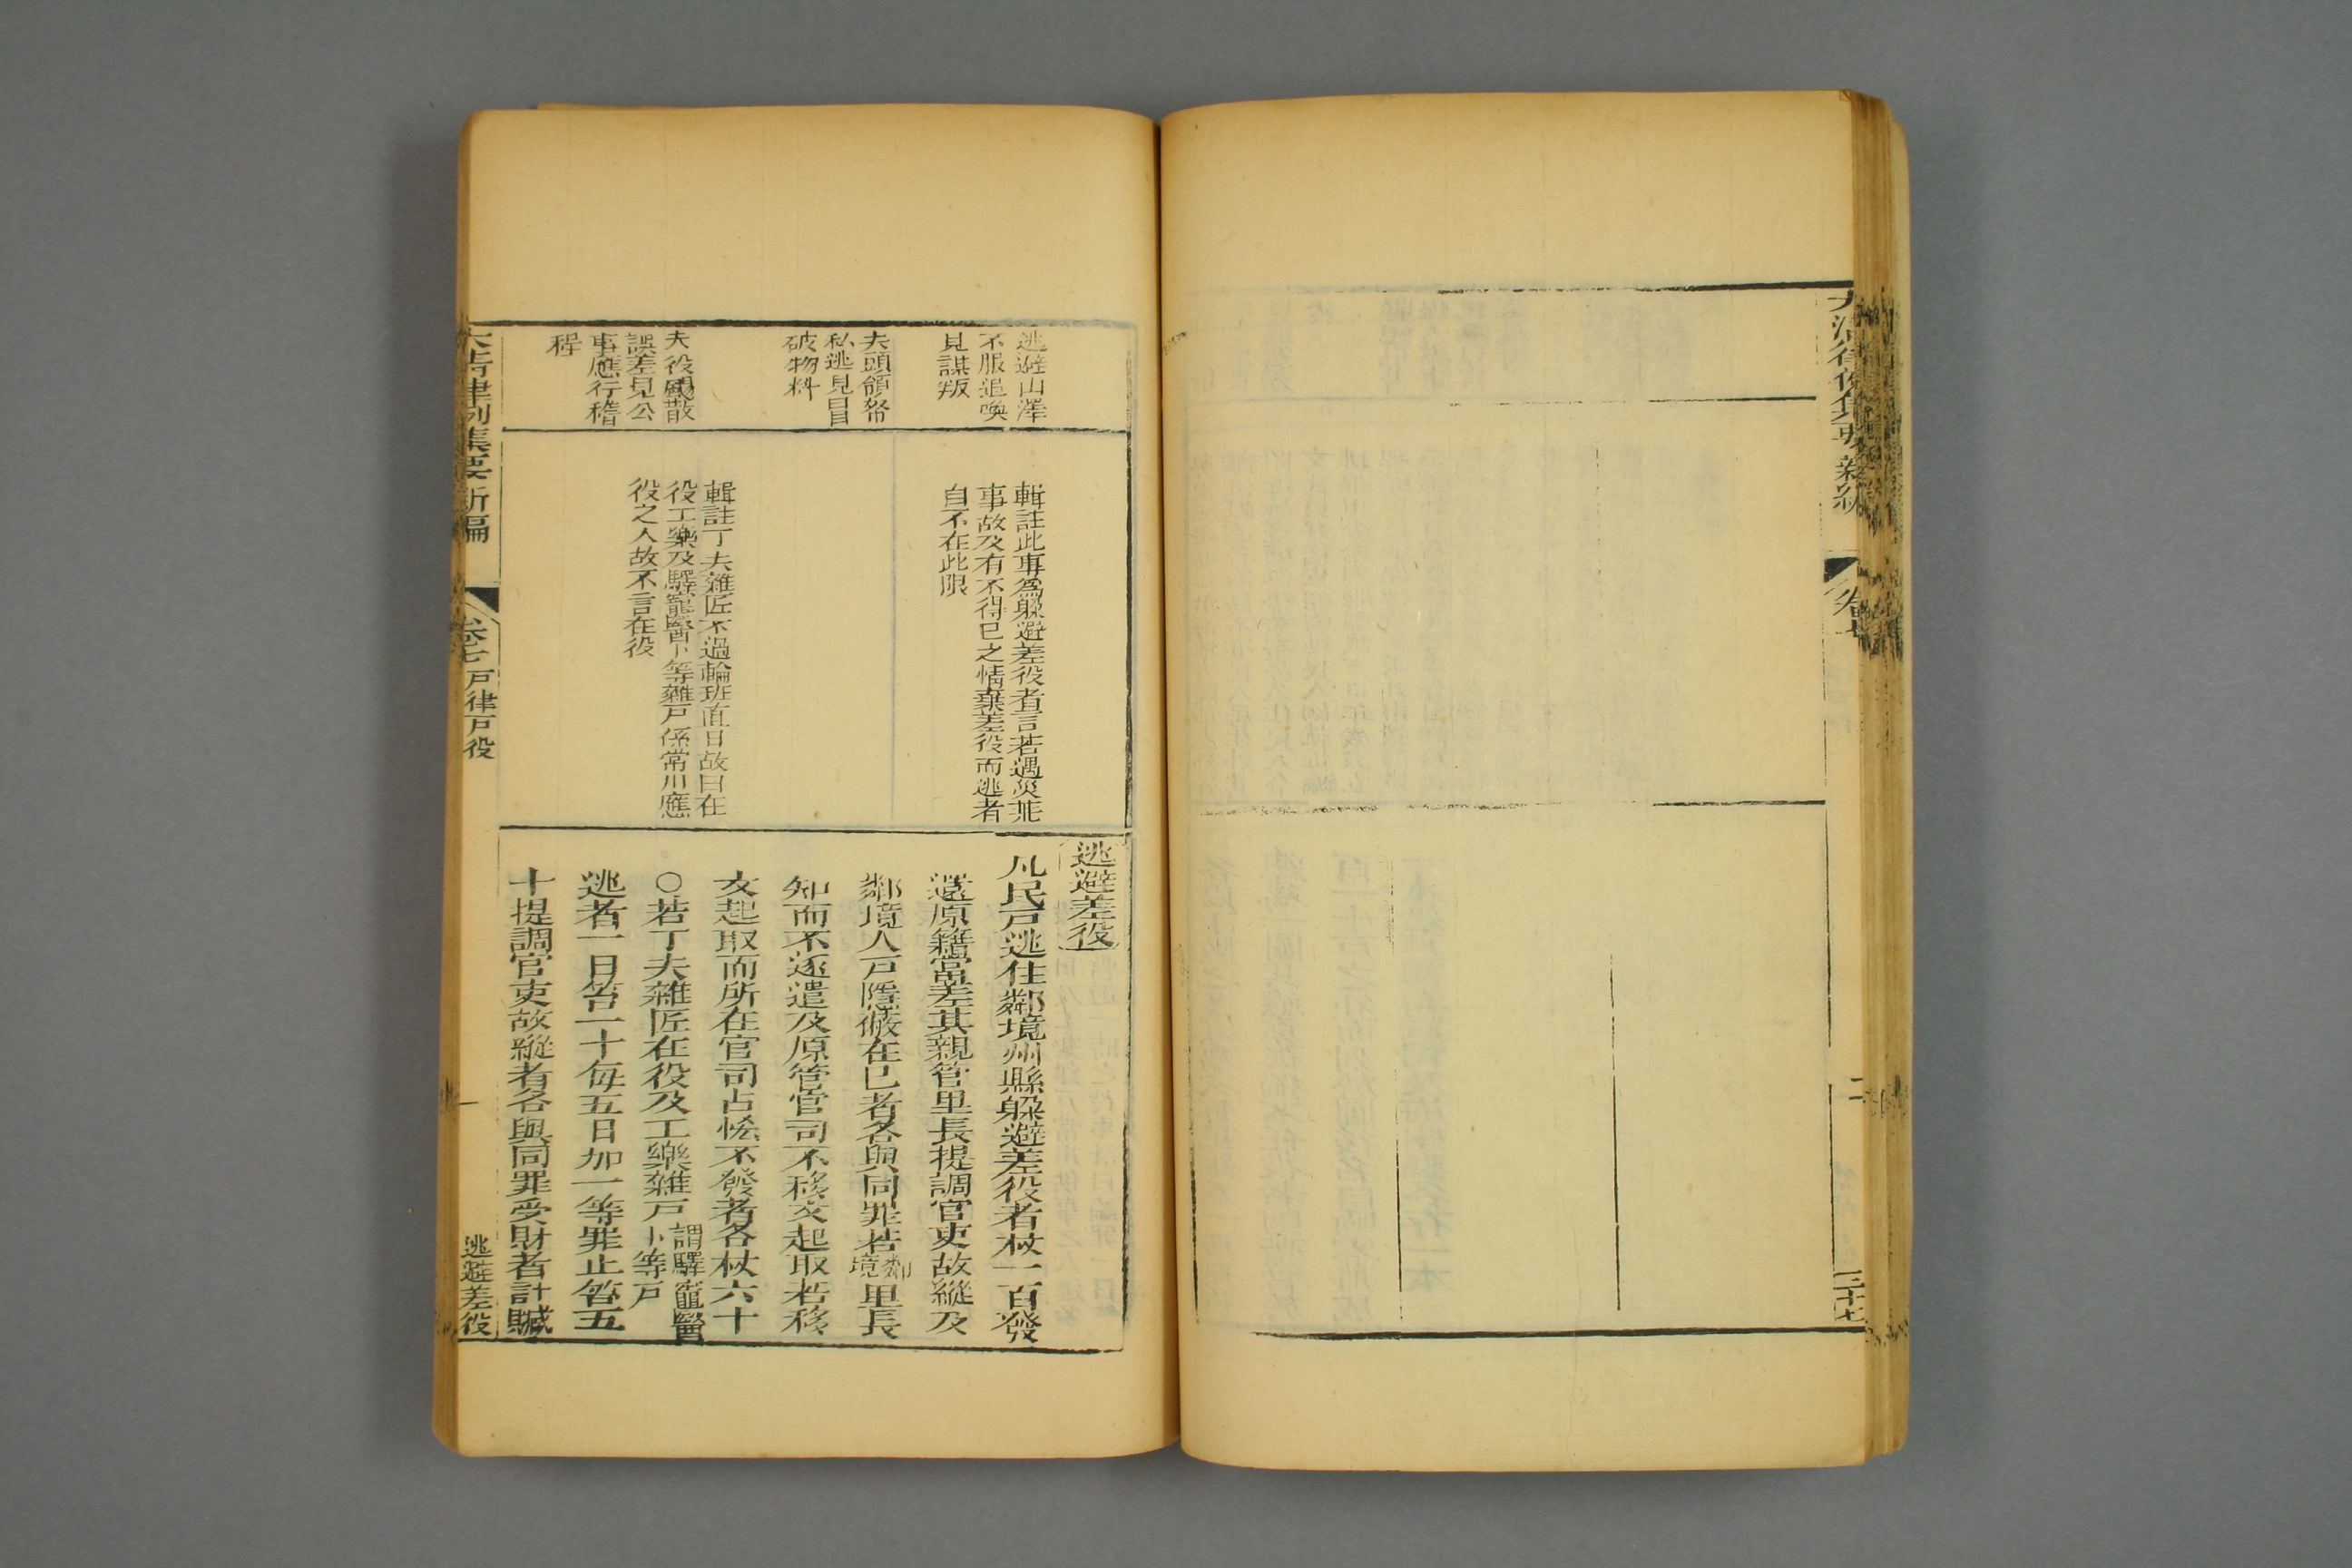 大清律例集要新編
卷七
二
三十七
逃避山澤
不服追喚
見謀叛
夫頭領帑
私逃見冒
破物料
夫役颺散
誤差見公
事應行稽
程
輯註此專爲躲避差役者言若遇災荒
事故及有不得已之情棄差役而逃者
自不在此限
輯註丁夫雜匠不過輪班直日故曰在
役工樂及驛竈醫卜等雜戶係常川應
役之人故不言在役
逃避差役
凡民戶逃住鄰境州縣躲避差役者杖一百發
還原籍當差其親管里長提調官吏故縱及
鄰境人戶隱蔽在已者各與同罪若鄰境里長
知而不逐遣及原管官司不移文起取若移
文起取而所在官司占恡不發者各杖六十
○若丁夫雜匠在役及工樂雜戶謂驛竈醫卜等戶
逃者一日笞一十每五日加一等罪止笞五
十提調官吏故縱者各與同罪受財者計贓
大清律例集要新編
卷七 戶律戶役
一
逃避差役